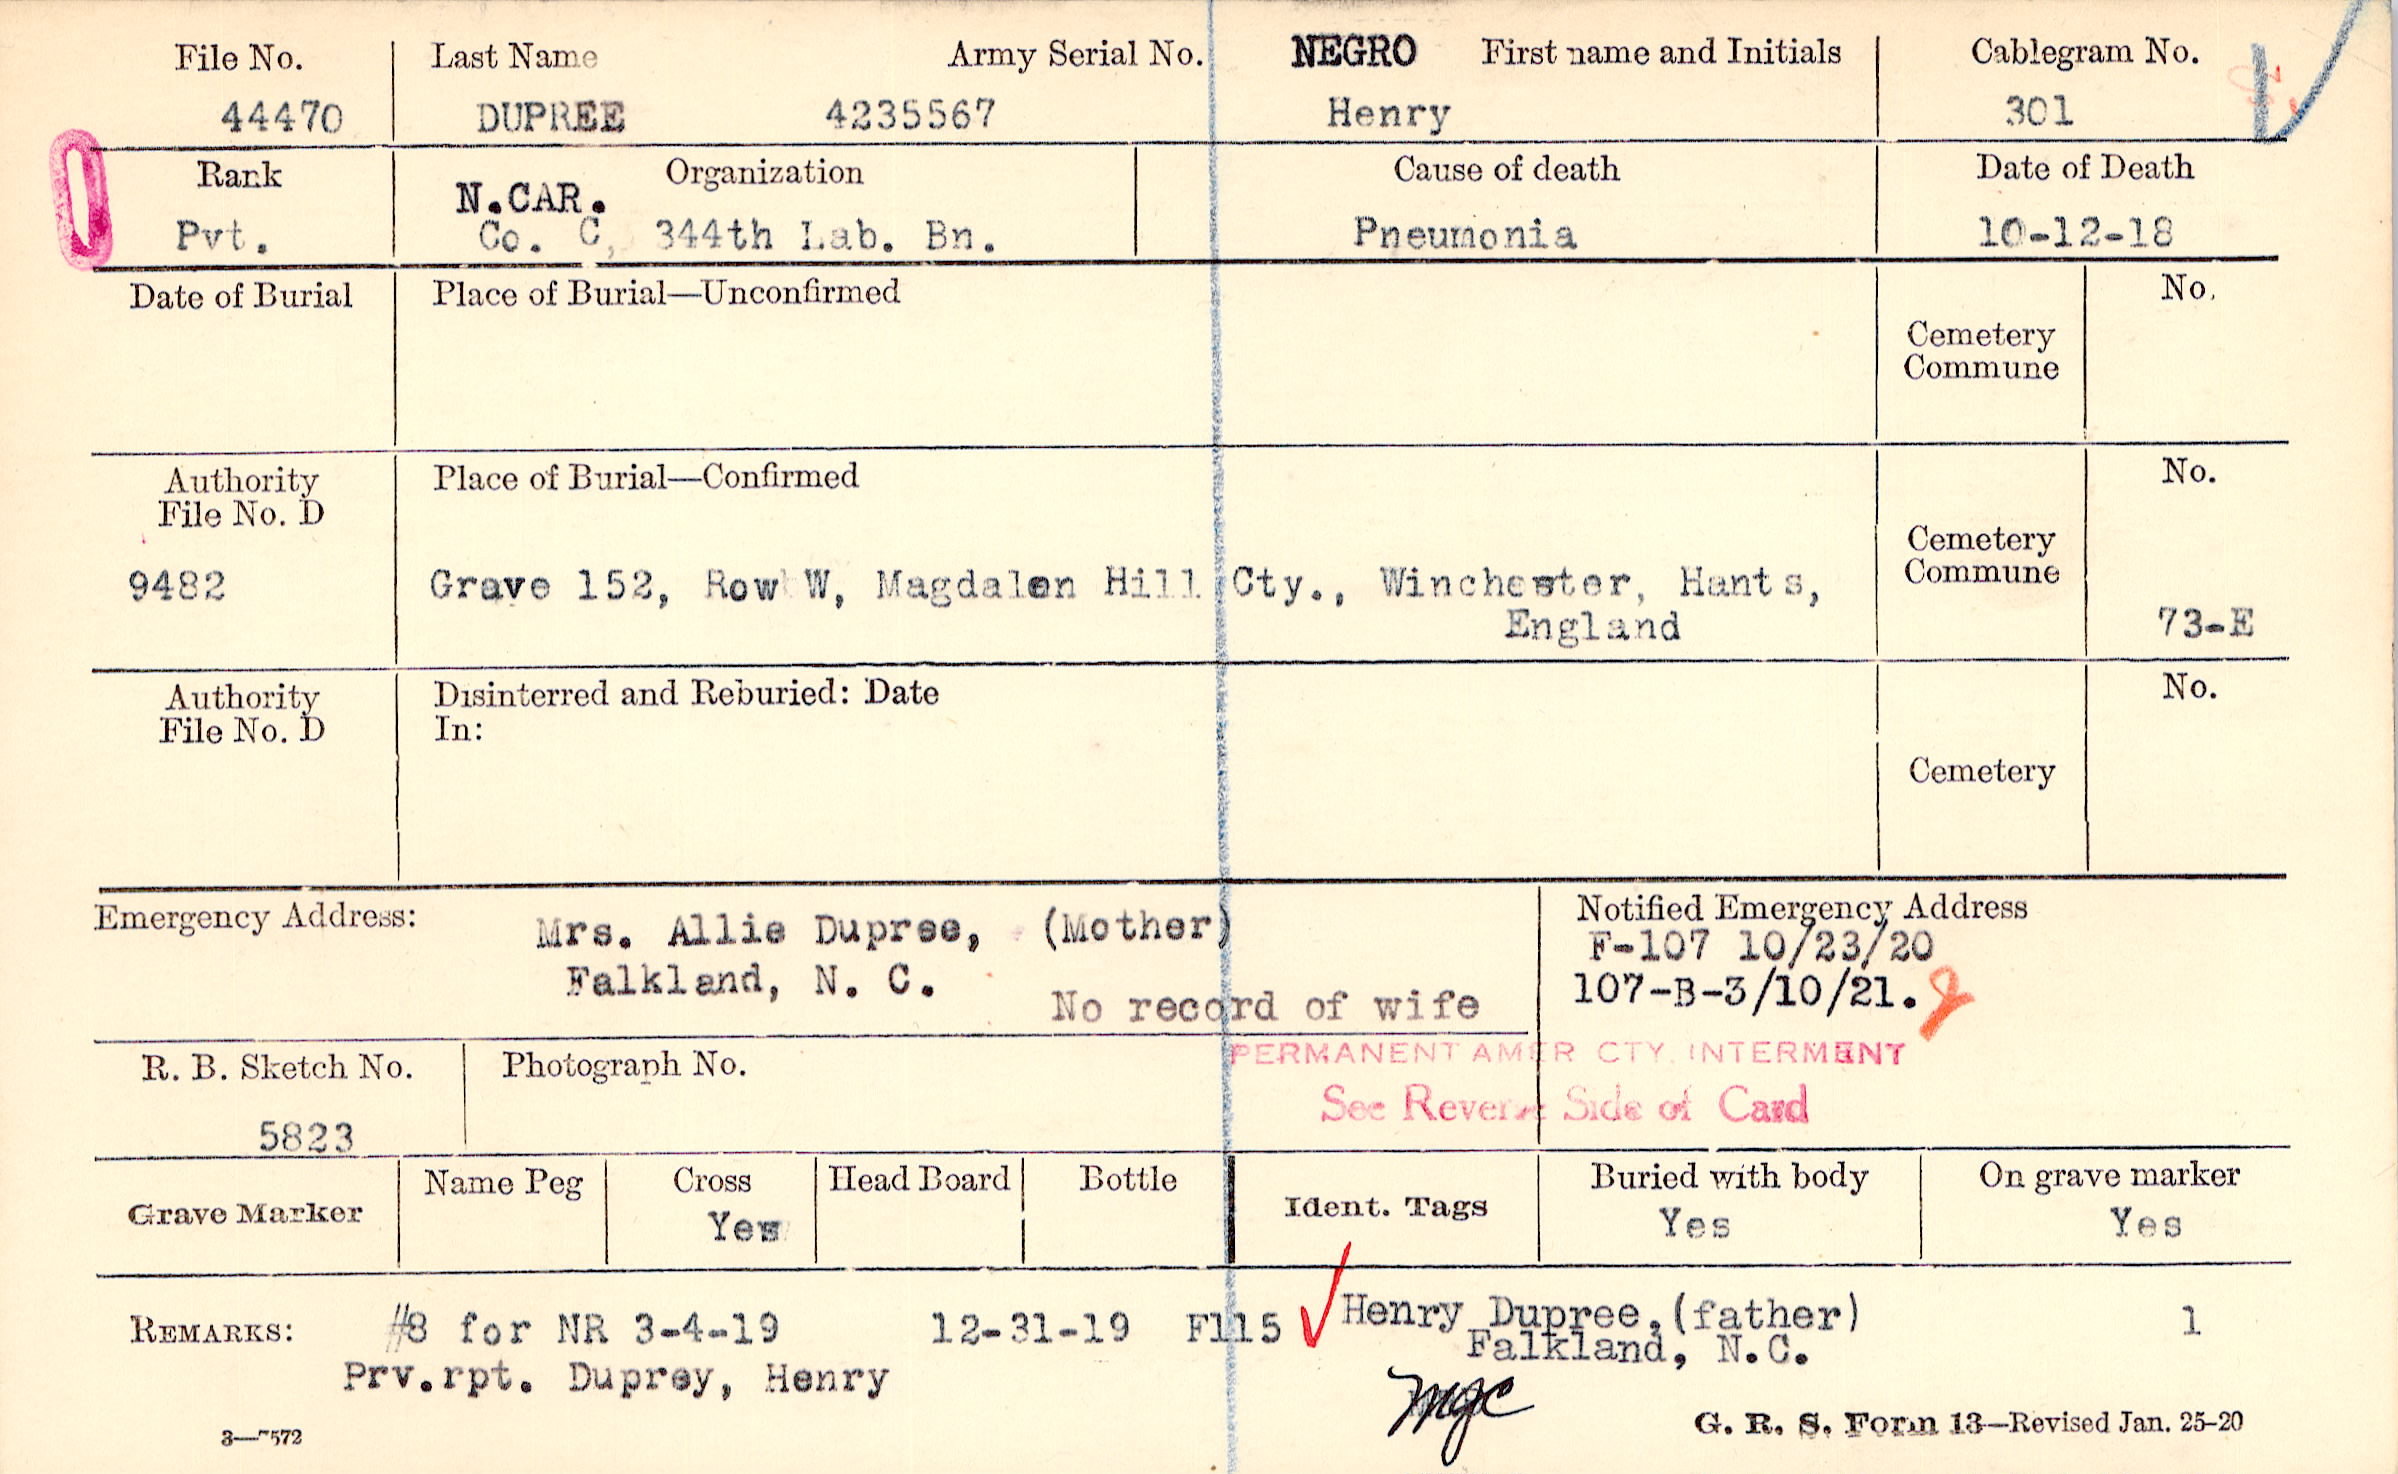 File No. Last Name Army Serial No. NEGRO First name and Initials Cablegram No.
44470 DUPREE 4235567 Henry 301
Rank Organization Cause of death Date of Death
N.CAR.
Pvt. Co. C, 344th Lab. Bn. Pneumonia 10-12-18
Date of Burial Place of Burial—Unconfirmed No.
Cemetery
Commune
Authority Place of Burial—Confirmed No.
File No. D
Cemetery
Commune
9482 Grave 152, Row W, Magdalen Hill Cty., Winchester, Hants,
England 73-E
Authority Disinterred and Reburied: Date No.
File No. D In:
Cemetery
Emergency Address: Mrs. Allie Dupree, (Mother) Notified Emergency Address
F-107 10/23/20
Falkland, N. C. 107-B-3/10/21.
No record of wife
R. B. Sketch No. Photograph No. PERMANENT AMER CTY. INTERMENT
See Reverse Side of Card
5823
Grave Marker Name Peg Cross Head Board Bottle Ident. Tags Buried with body On grave marker
Yes Yes Yes
REMARKS: #8 for NR 3-4-19 12-31-19 F115 Henry Dupree,(father) 1
Falkland, N.C.
Prv.rpt. Duprey, Henry
mgc
3—7572 G. R. S. Form 13—Revised Jan. 25-20